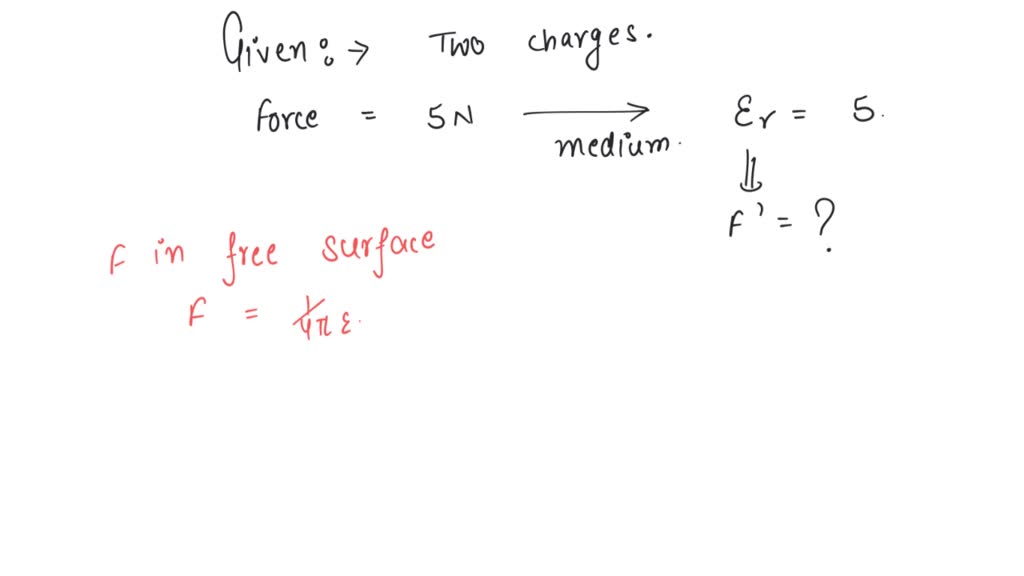 Given: → Two charges.
force = 5N → medium. εr = 5.
⇓
F' = ?
F in free surface
F = 1/4π ε.